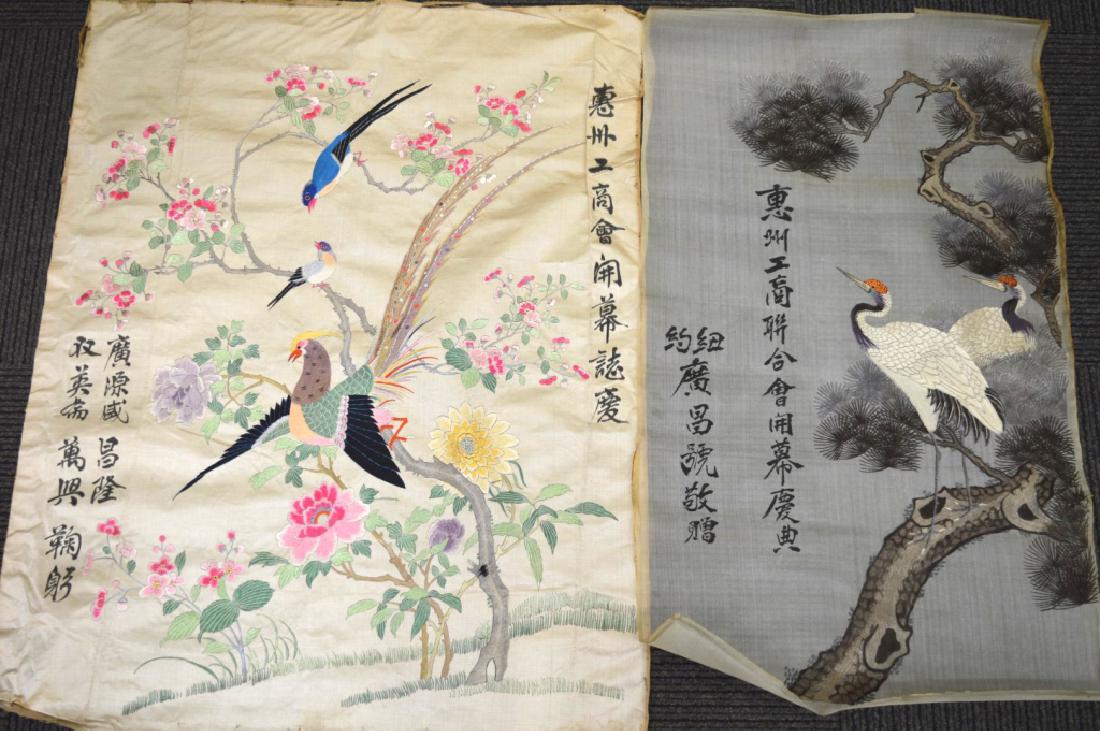 惠州工商會開幕誌慶
廣源盛 昌隆
萬興 鞠躬
惠州工商聯合會開幕慶典
紐約
廣昌號敬贈